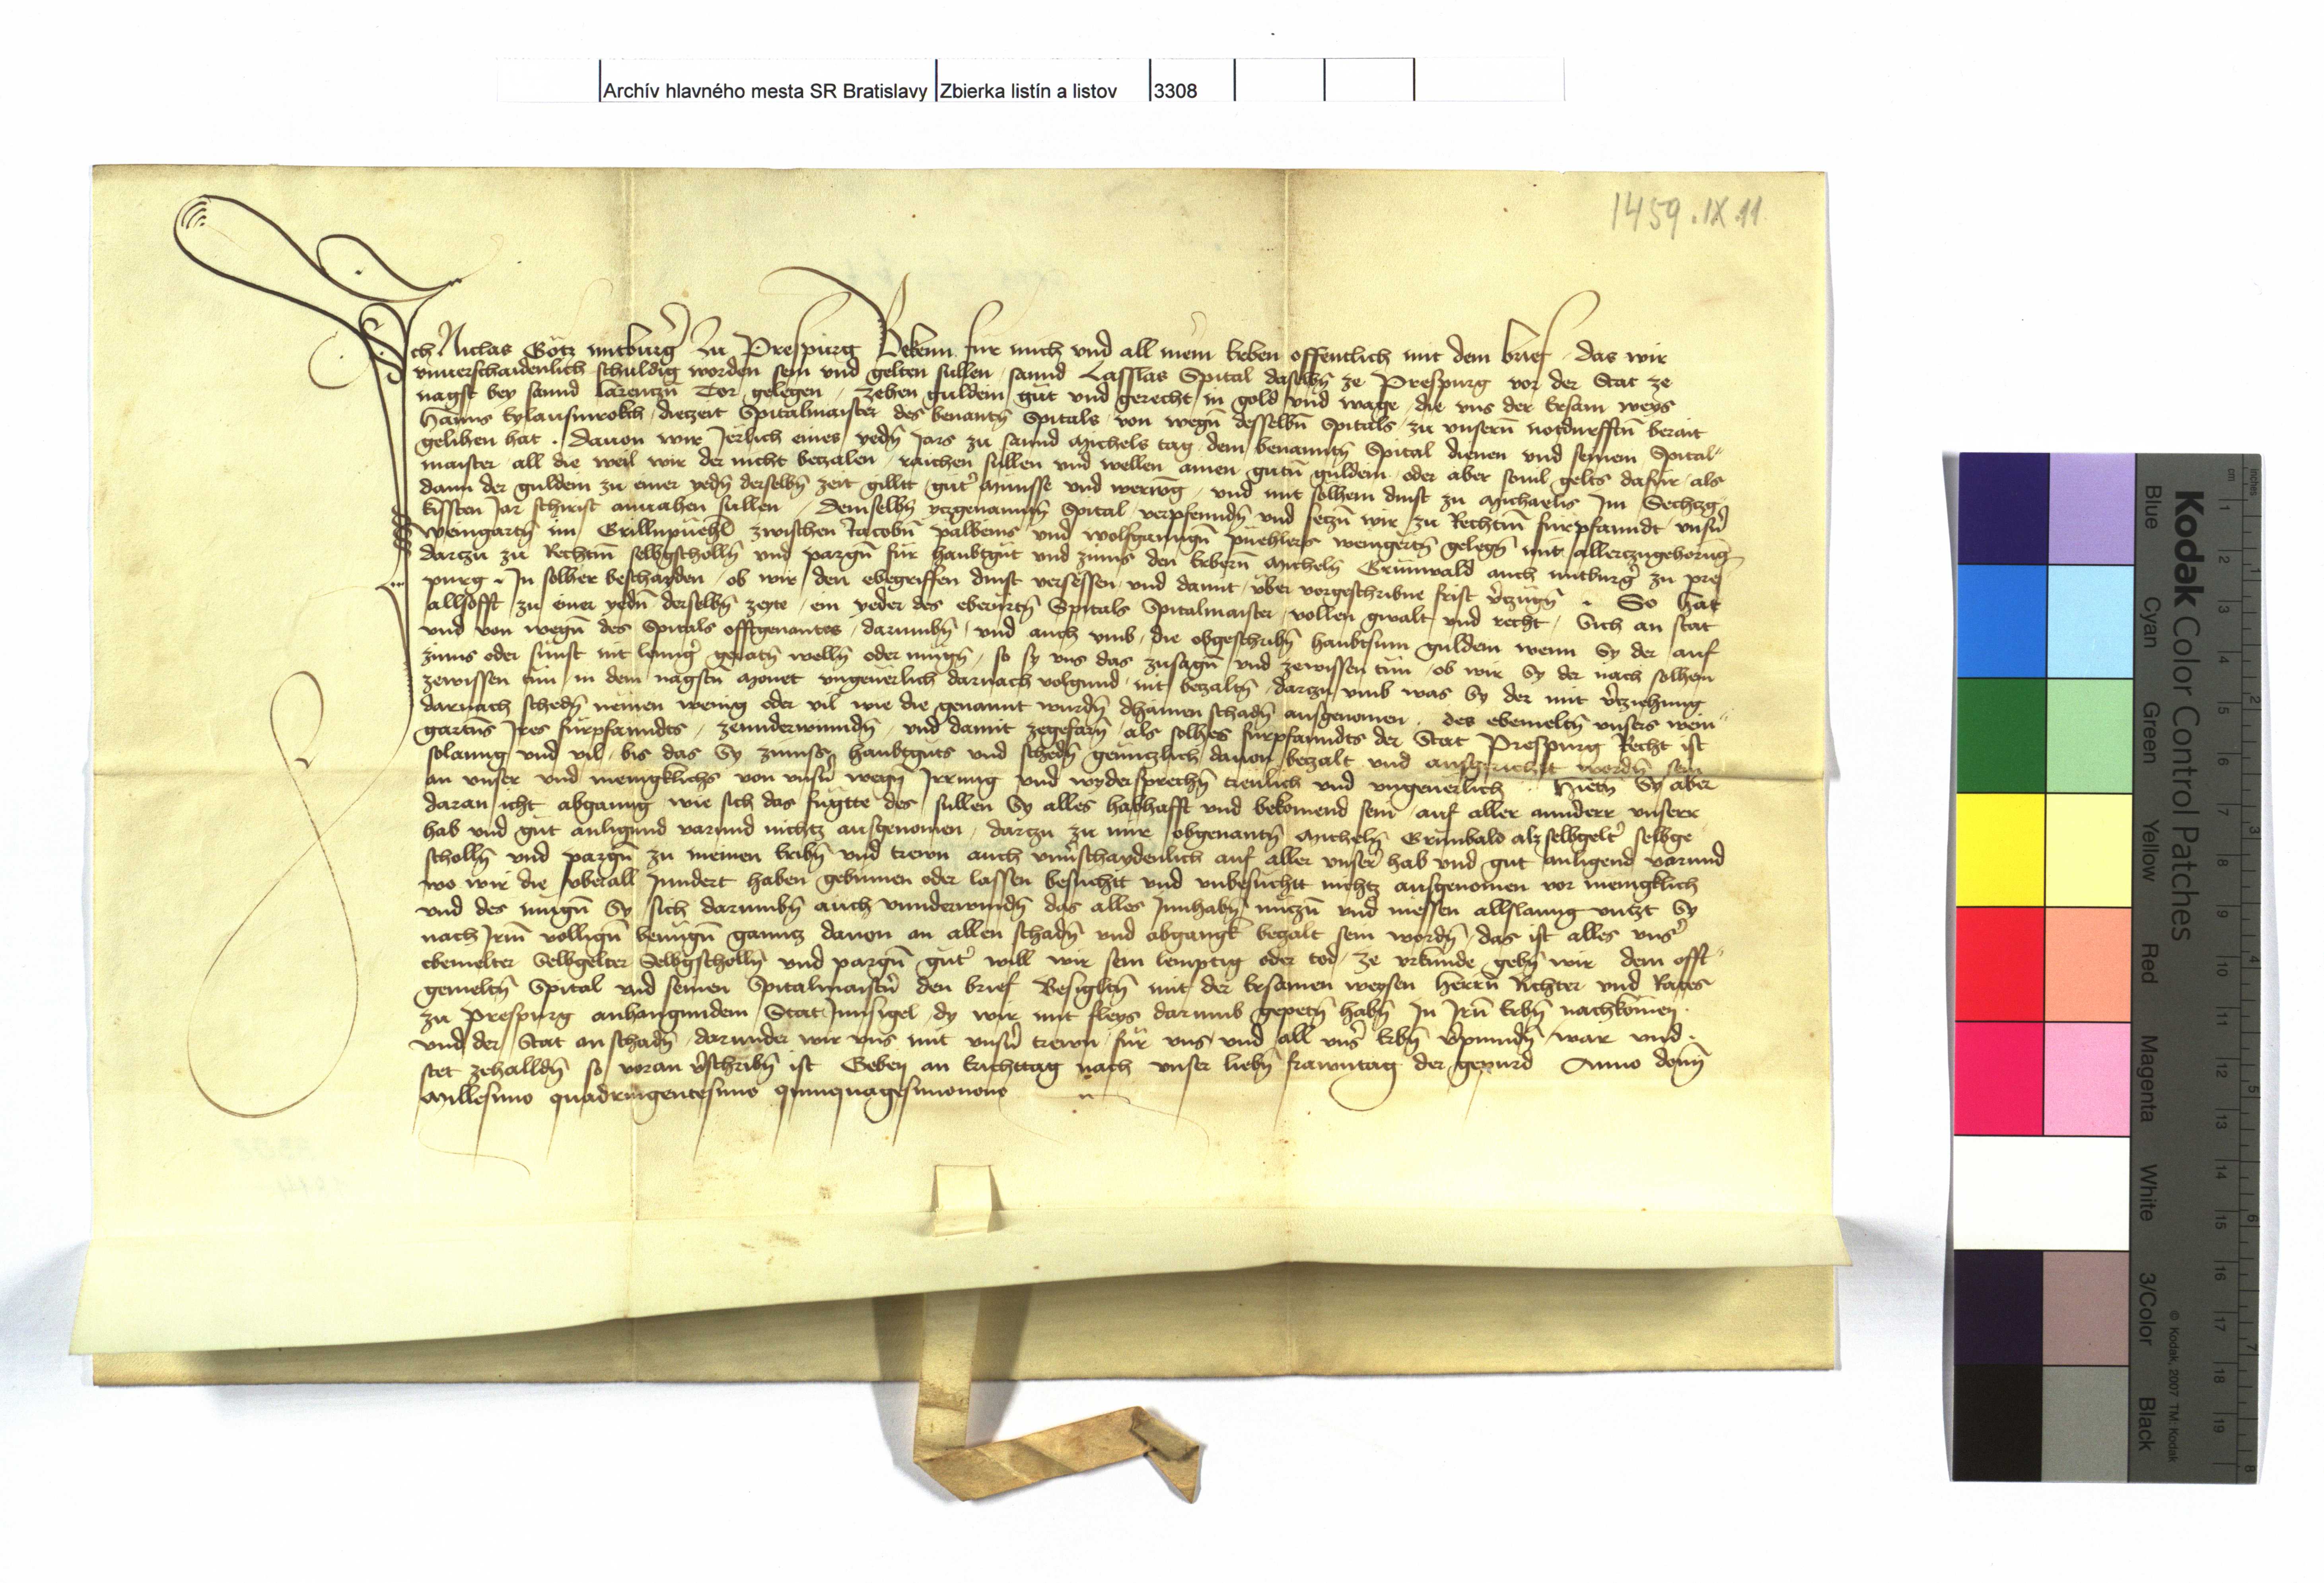 Archív hlavného mesta SR Bratislavy Zbierka listín a listov 3308
1459.IX.11
Ich Niclas Götz mitburg̉ zu Prespurg Bekenn für mich vnd all mein Erben offentlich mit dem brief das wir
vnuerschaidenlich schuldig worden sein vnd gelten sullen sannd Lasslas Spital daselbn̄ ze Prespurg vor der Stat ze
nagst bey sannd larenczn̄ Tor gelegen zehen guldein gůt vnd gerecht in gold vnd wage die vns der Ersam weys
Hanns dietzeit Spitalmaister des benantn̄ Spitals von wegn̄ desselbn̄ Spitals zu vnsern̄ notdurfftn̄ berait
gelihen hat . Dauon wir Jerlich eines yedn̄ Jars zu sannd Michels tag dem benanntn̄ Spital dienen vnd seinem Spital
maister all die weil wir der nicht betzalen raichen sullen vnd wellen ainen gutn̄ guldein oder aber souil gelts dafür als
dann der guldein zu einer yedn̄ derselbn̄ zeit gilltt gut̉ Münsse vnd werūg vnd mit solhem dinst zu Michaelis Im Sechtzg
kissten Jar schirist anuahen sullen Demselbn̄ ytzgenanntn̄ Spital verpfenndn̄ vnd setzn̄ wir zu Rechtm̄ furpfanndt vnsn̉
Weingartn̄ im Grillnpüehl zwischen Jacobn̄ palbeins vnd Wolfganngn̄ püehlers weingertn̄ gelegn̄ mit allerczugehorūg
dartzu zu Rechtm̄ selbgscholln̄ vnd pargn̄ für haubtgut vnd zinns den Erbern̄ Micheln̄ Grünwald auch mitburg̉ zu pres
purg In solher beschayden ob wir den ebegriffen dinst versëssen vnd damit über vorgeschribne frist v̉tzügn̄ So hat
allsofft zu einer yedn̄ derselbn̄ zeyte ein yeder des eberürtn̄ Spitals Spitalmaister vollen gwalt vnd recht Sich an stat
vnd von wegn̄ des Spitals offtgenantes darumbn̄ vnd auch vmb die obgeschribn̄ haubtsum guldein wenn Sy der auf
zinns oder sunst nit lenng̉ geratn̄ welln̄ oder mügn̄ so sy vns das zusagn̄ vnd zewissen tün ob wir Sy der nach solhem
zewissen tün in dem nagstn̄ Monet vngeuerlich darnach volgund nit betzaltn̄ dartzu vmb was Sy der mit v̉tziehung
darnach schedn̄ nëmen wenig oder vil wie die genannt wurdn̄ dhainen schadn̄ ausgenomen des ebemeltn̄ vnsers wein
gartn̄s Ires furpfanndts zeunderwinndn̄ vnd damit zegefarn̄ als solhes furpfanndts der Stat Prespurg Recht ist
solanng vnd vil bis das Sy zinnss haubtguts vnd schedn̄ genntzlich dauon betzalt vnd ausgericht wordn̄ sein
an vnser vnd menigklichs von vnsn̉ wegn̄ Irrung vnd widersprechn̄ treulich vnd vngeuerlich Hietn̄ Sy aber
daran icht abganng wie sich das fügtte des sullen Sy alles habhafft vnd bekomend sein auf aller annderr vnserr
hab vnd gut anligund varund nichtz ausgenomen dartzu zu mir obgenantn̄ Micheln̄ Grünbald alz selbgelt̉ selbge
scholln̄ vnd pargn̄ zu meinen Eribn̄ vnd trewn auch vnủschaydenlich auf aller vnser̉ hab vnd gut anligend varund
wo wir die vberall Inndert haben gebinnen oder lassen besuchtt vnd vnbesuchtt nichtz ausgenomen vor menigklich
vnd des mügn̄ Sy sich darumbn̄ auch vnnderwindn̄ das alles Innhabn̄ nützn̄ vnd niessen allslanng vntzt Sy
nach Irm̄ vollign̄ benügn̄ ganntz dauon an allen schadn̄ vnd abgangk betzalt sein wordn̄ das ist alles vns̉
ebemelter Selbgelter Selbgscholln̄ vnd pargn̄ gut̉ will wir sein lemptig oder tod ze vrkunde gebn̄ wir dem offt
gemeltn̄ Spital vnd seinen Spitalmaistn̉ den brief Besigltn̄ mit der Ersamen weysen herrn̄ Richter vnd Rates
zu Prespurg anhangundem Stat Innsigel dy wir mit fleys darumb gepetn̄ habn̄ In Irn̄ Erbn̄ nachkomen
vnd der Stat an schadn̄ darunder wir vns mit vnsn̉ trewn für vns vnd all vns̉ Erbn̄ v̉pinndn̄ war vnd
stet zehalldn̄ so voran v̉schribn̄ ist Geben an Erichttag nach vnser liebn̄ frawntag der gepurd Anno domī
Millesimo quadringentesimo quinquagesimonono
Kodak Color Control Patches
Blue Cyan Green Yellow Red Magenta White 3/Color Black
© Kodak, 2007 TM: Kodak
inches 1 2 3 4 5 6 7 8
cm 1 2 3 4 5 6 7 8 9 10 11 12 13 14 15 16 17 18 19